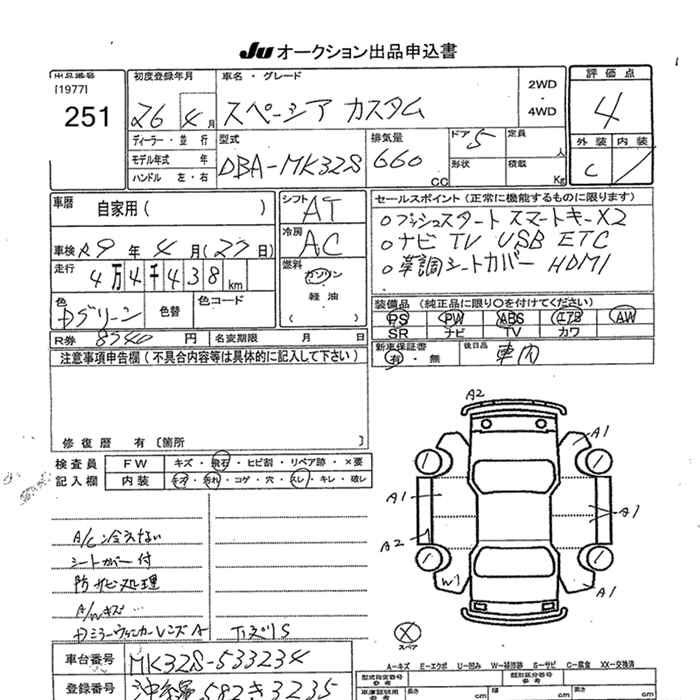 Ju オークション出品申込書
出品番号
[1977]
251
初度登録年月
26 年 4 月
車名・グレード
スペーシア カスタム
2WD
・
4WD
評価点
4
外装 内装
C
ディーラー・並行
モデル年式 年
ハンドル 左・右
型式
DBA-MK32S
排気量
660
CC
ドア 5
定員
人
形状
積載
Kg
車歴
自家用( )
シフト
AT
車検 R9年4月(27日)
冷房
AC
走行
4万4千438km
燃料
ガソリン
・
軽油
( )
色
Dグリーン
色替
色コード
R券 8540 円 名変期限 月 日
セールスポイント (正常に機能するものに限ります)
○プッシュスタート スマートキーX2
○ナビ TV USB ETC
○革調シートカバー HDMI
装備品 (純正品に限り○を付けてください)
PS PW ABS エアB AW
SR ナビ TV カワ
新車保証書
有・無
後日品
車内
注意事項申告欄(不具合内容等は具体的に記入して下さい)
修復歴 有〔箇所 〕
検査員
記入欄
FW キズ・飛石・ヒビ割・リペア跡・×要
内装 キズ・汚れ・コゲ・穴・スレ・キレ・破レ
A/C冷えない
シートカバー付
防サビ処理
A/Wキズ
DミラーウィンカーレンズA
TズリS
A2
A1
A1
A1
A2
W1
A1
スペア
A-キズ E-エクボ U-凹み W-補修跡 S-サビ C-腐食 XX-交換済
車台番号 MK32S-533234
登録番号 沖縄 582 き 3235
型式指定番号
参考
類別区分番号
参考
長さ cm 幅 cm 高さ cm